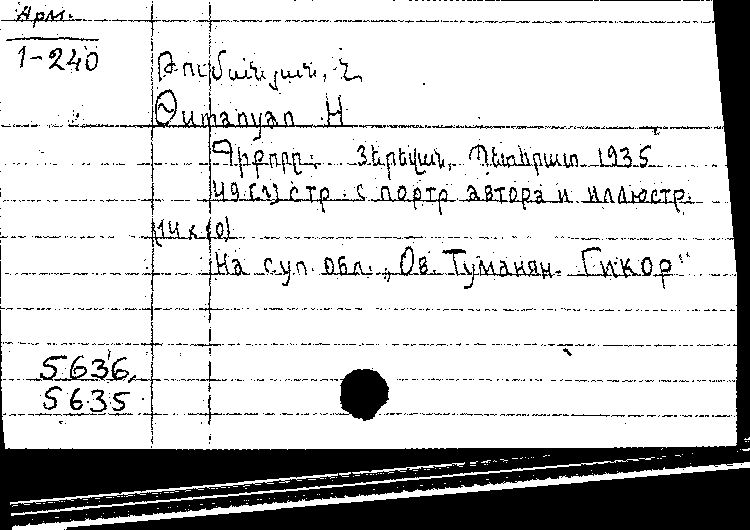 Арм.
1-240
Թումանյան, Հ.
Թumanyan H
Գիքորը. Յերեվան, Պետհրատ 1935
49 [1] стр. с портр автора и иллюстр.
(14 х 10)
На суп. обл. „Ов. Туманян. Гикор"
5636,
5635